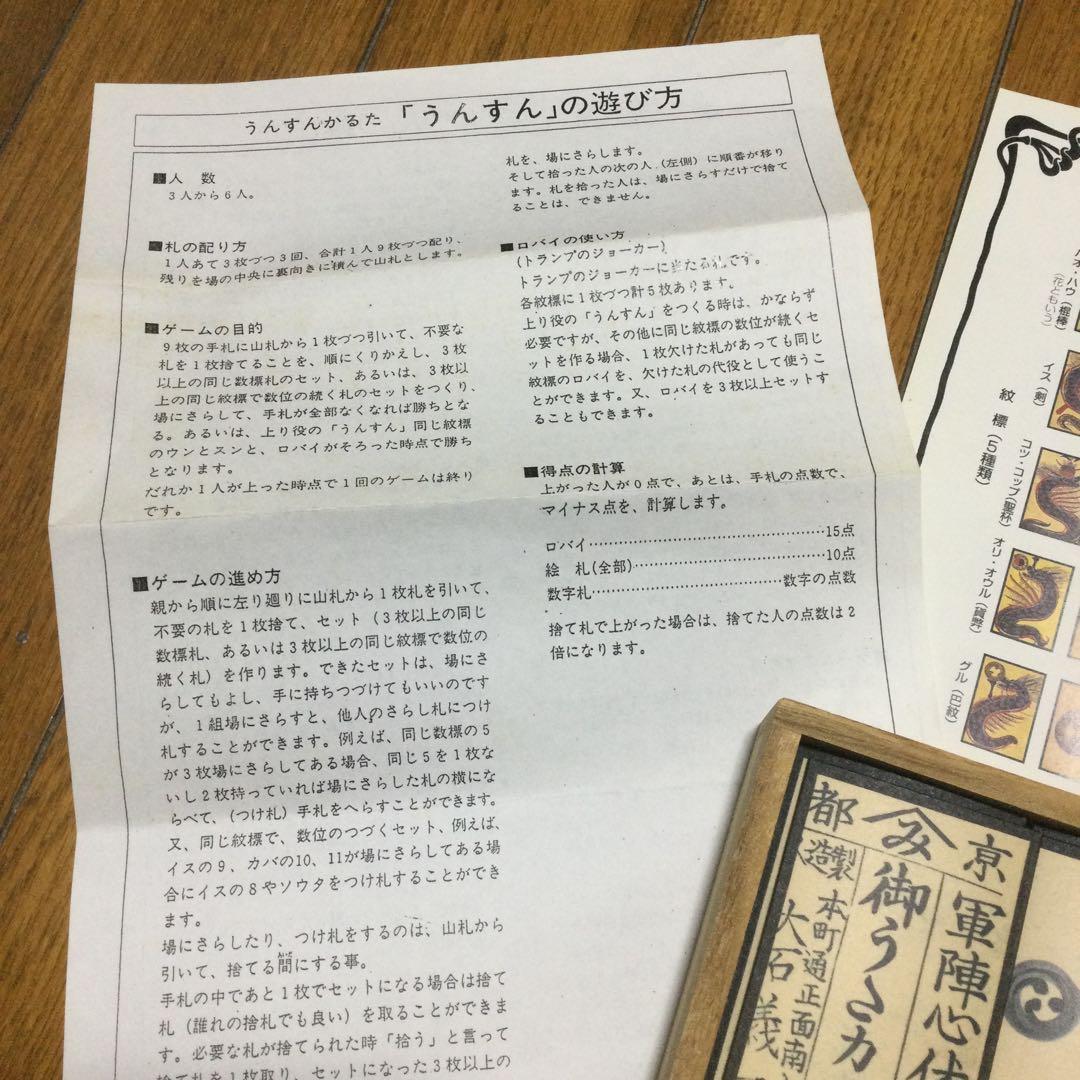 うんすんかるた「うんすん」の遊び方
■人 数
3人から6人。
■札の配り方
1人あて3枚づつ3回、合計1人9枚づつ配り、
残りを場の中央に裏向きに積んで山札とします。
■ゲームの目的
9枚の手札に山札から1枚づつ引いて、不要な
札を1枚捨てることを、順にくりかえし、3枚
以上の同じ数標札のセット、あるいは、3枚以
上の同じ紋標で数位の続く札のセットをつくり、
場にさらして、手札が全部なくなれば勝ちとな
る。あるいは、上り役の「うんすん」同じ紋標
のウンとスンと、ロバイがそろった時点で勝ち
となります。
だれか1人が上った時点で1回のゲームは終り
です。
■ゲームの進め方
親から順に左り廻りに山札から1枚札を引いて、
不要の札を1枚捨て、セット(3枚以上の同じ
数標札、あるいは3枚以上の同じ紋標で数位の
続く札)を作ります。できたセットは、場にさ
らしてもよし、手に持ちつづけてもいいのです
が、1組場にさらすと、他人のさらし札につけ
札することができます。例えば、同じ数標の5
が3枚場にさらしてある場合、同じ5を1枚な
いし2枚持っていれば場にさらした札の横にな
らべて、(つけ札)手札をへらすことができます。
又、同じ紋標で、数位のつづくセット、例えば、
イスの9、カバの10、11が場にさらしてある場
合にイスの8やソウタをつけ札することができ
ます。
場にさらしたり、つけ札をするのは、山札から
引いて、捨てる間にする事。
手札の中であと1枚でセットになる場合は捨て
札(誰れの捨札でも良い)を取ることができま
す。必要な札が捨てられた時「拾う」と言って
捨て札を1枚取り、セットになった3枚以上の
札を、場にさらします。
そして拾った人の次の人(左側)に順番が移り
ます。札を拾った人は、場にさらすだけで捨て
ることは、できません。
■ロバイの使い方
(トランプのジョーカー)
トランプのジョーカーに当たる札です。
各紋標に1枚づつ計5枚あります。
上り役の「うんすん」をつくる時は、かならず
必要ですが、その他に同じ紋標の数位が続くセ
ットを作る場合、1枚欠けた札があっても同じ
紋標のロバイを、欠けた札の代役として使うこ
とができます。又、ロバイを3枚以上セットす
ることもできます。
■得点の計算
上がった人が0点で、あとは、手札の点数で、
マイナス点を、計算します。
ロバイ……………………………15点
絵 札(全部)……………………10点
数字札……………………数字の点数
捨て札で上がった場合は、捨てた人の点数は2
倍になります。
紋標(5種類)
オ・ハウ(棍棒)
(花ともいう)
イス(剣)
コツ・コップ(聖杯)
オリ・オウル(貨幣)
グル(巴紋)
京
都
み
軍陣心
御うんカ
製造
本町通正面南
大石義